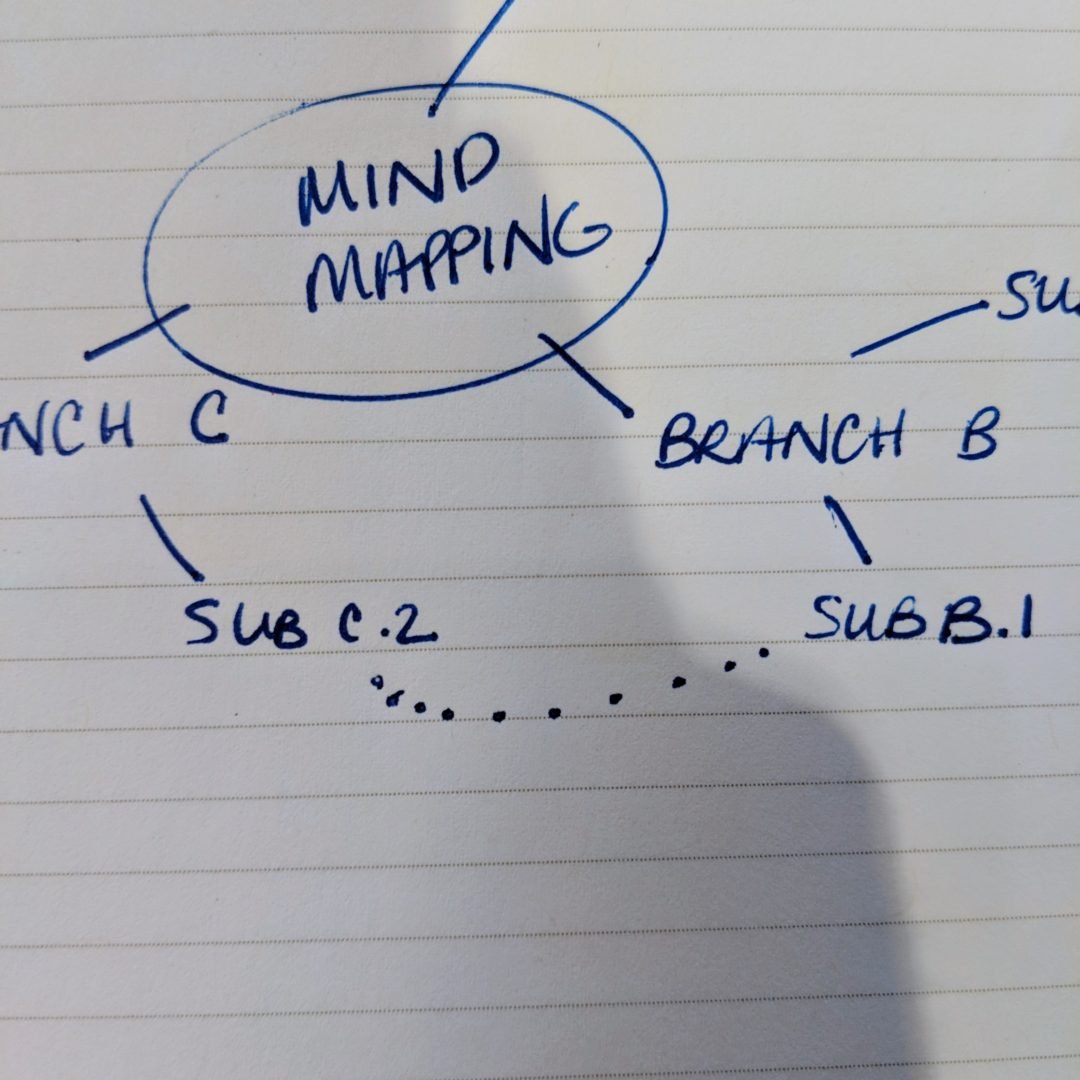 MIND
MAPPING
SU
NCH C
BRANCH B
SUB C.2
SUB B.1